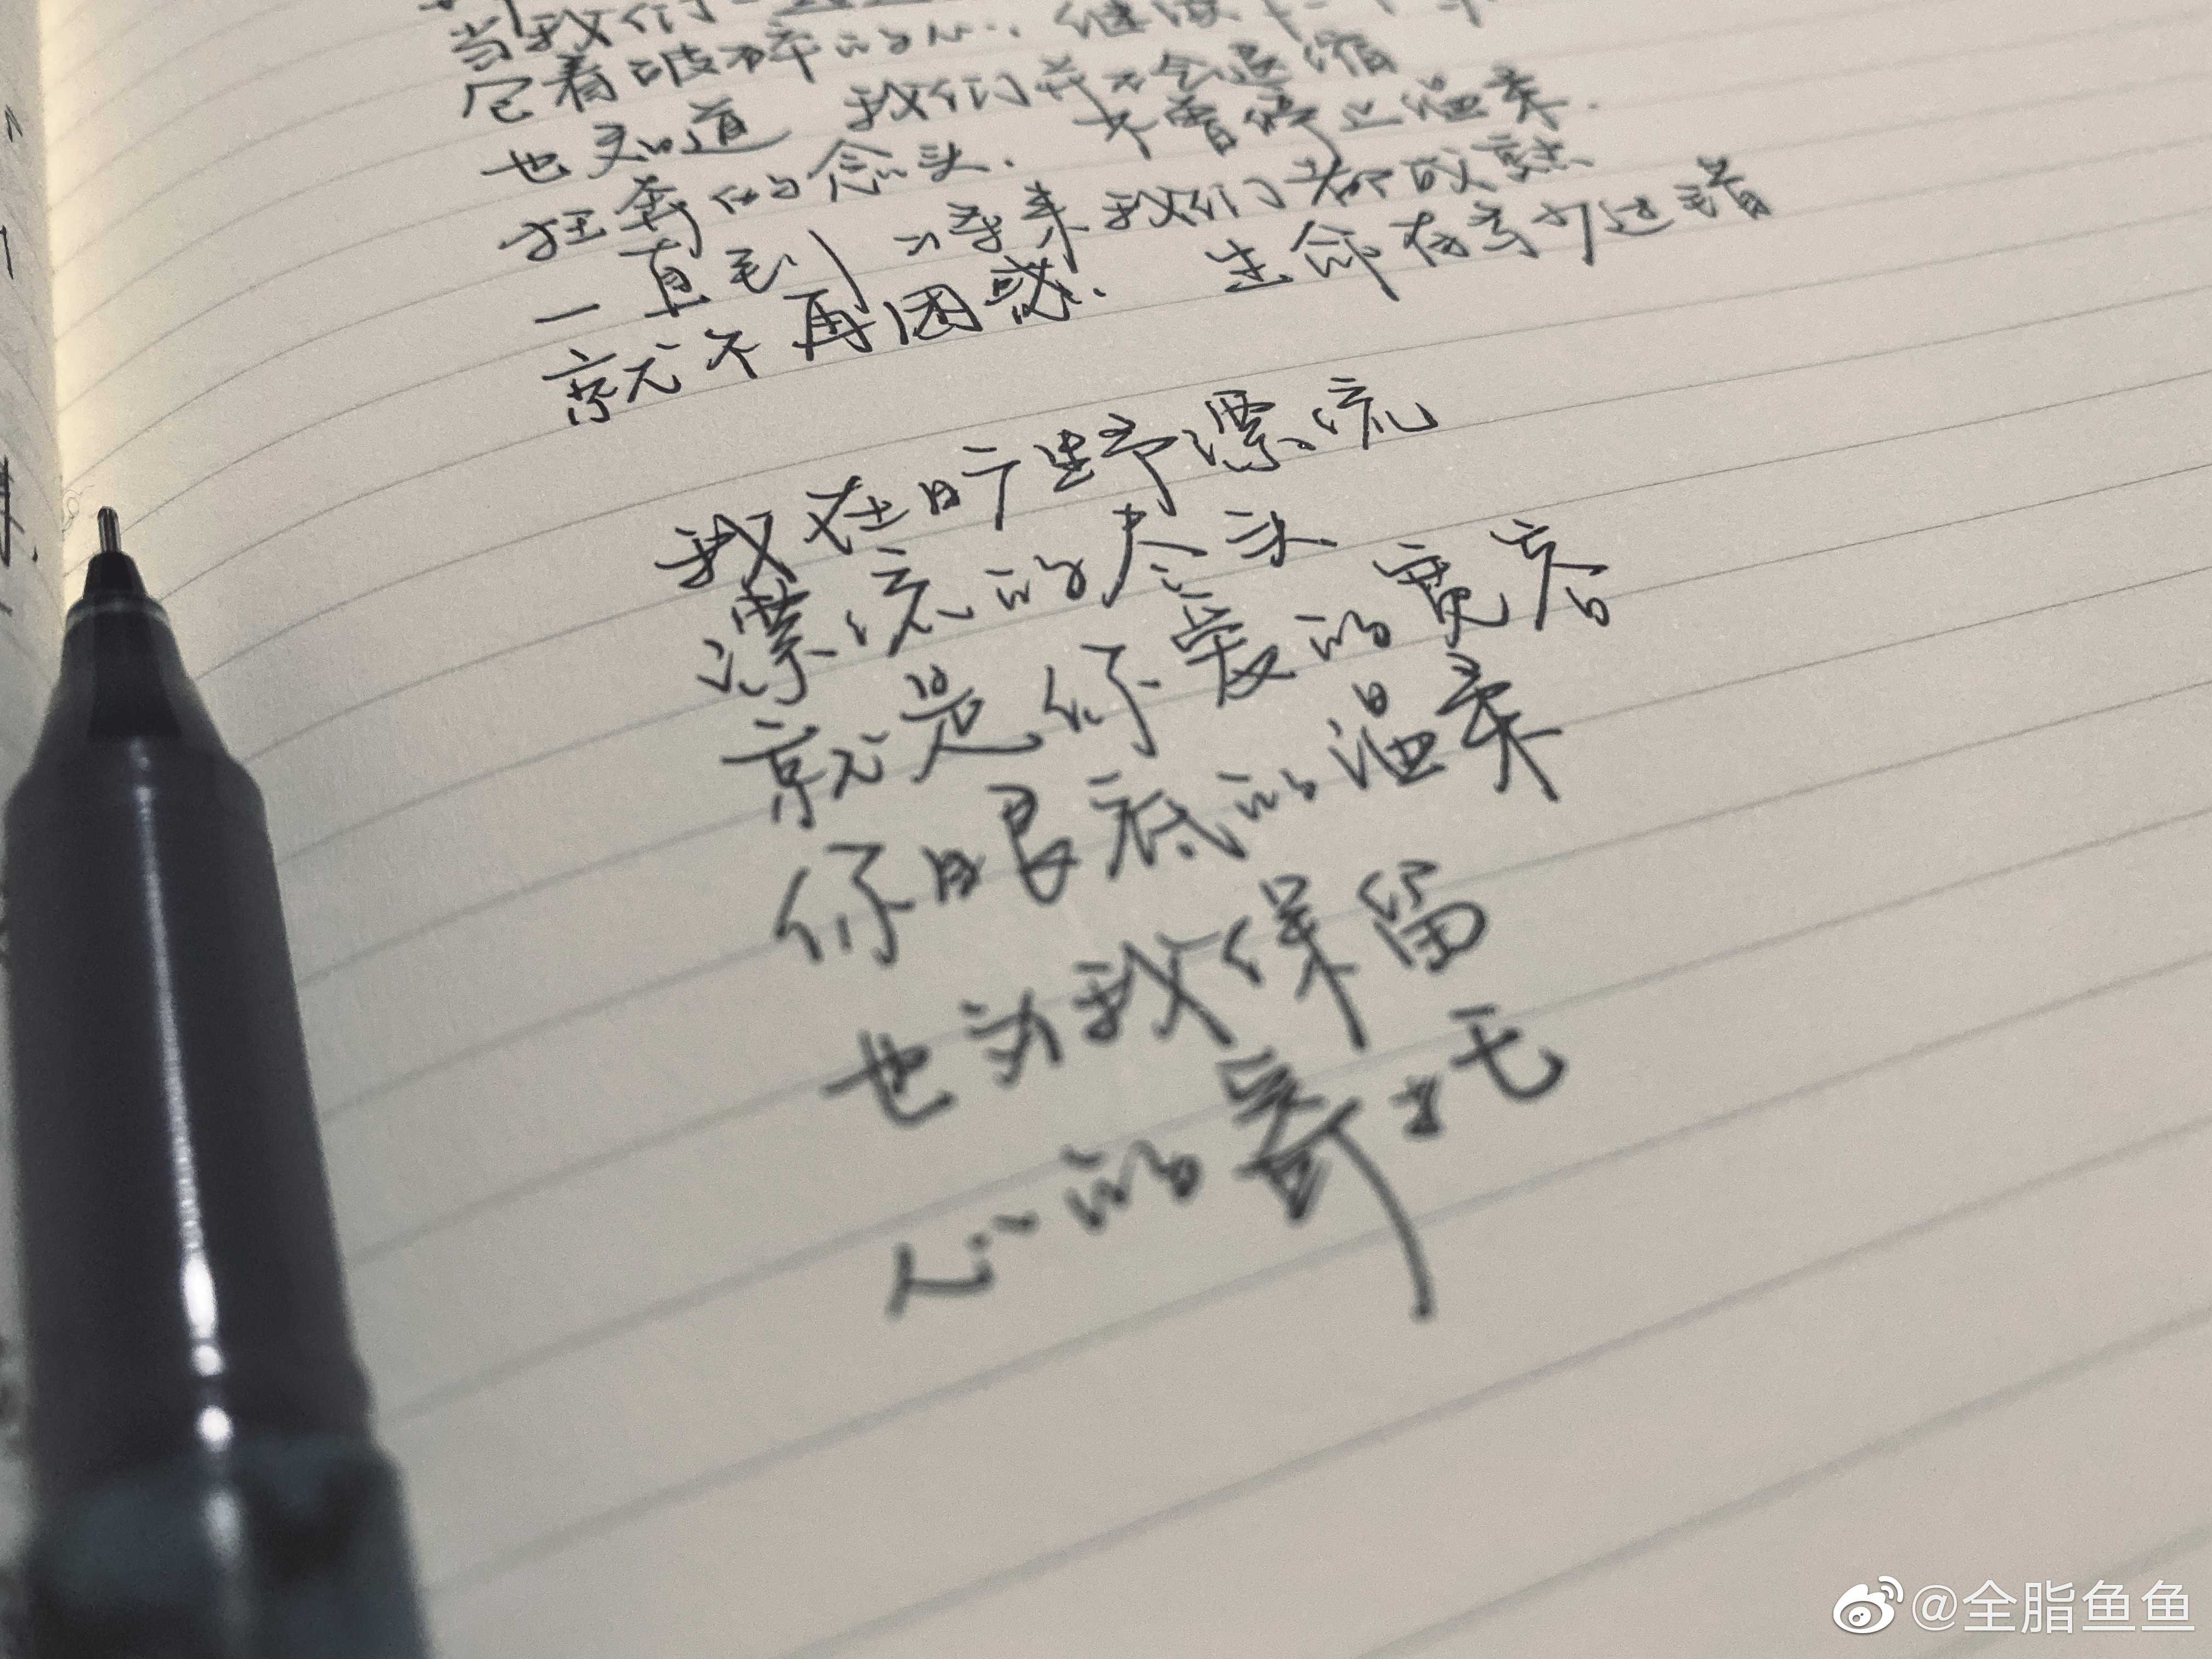 当我们
它着破碎的心. 继续
也知道 我们并不会退缩
狂奔的念头. 不曾停止温柔.
一直到 后来我们都成熟
就不再困惑. 生命有多少过错
我在旷野漂流
漂流的尽头
就是你爱的宽容
你眼底的温柔
也为我保留
心的寄托
@全脂鱼鱼